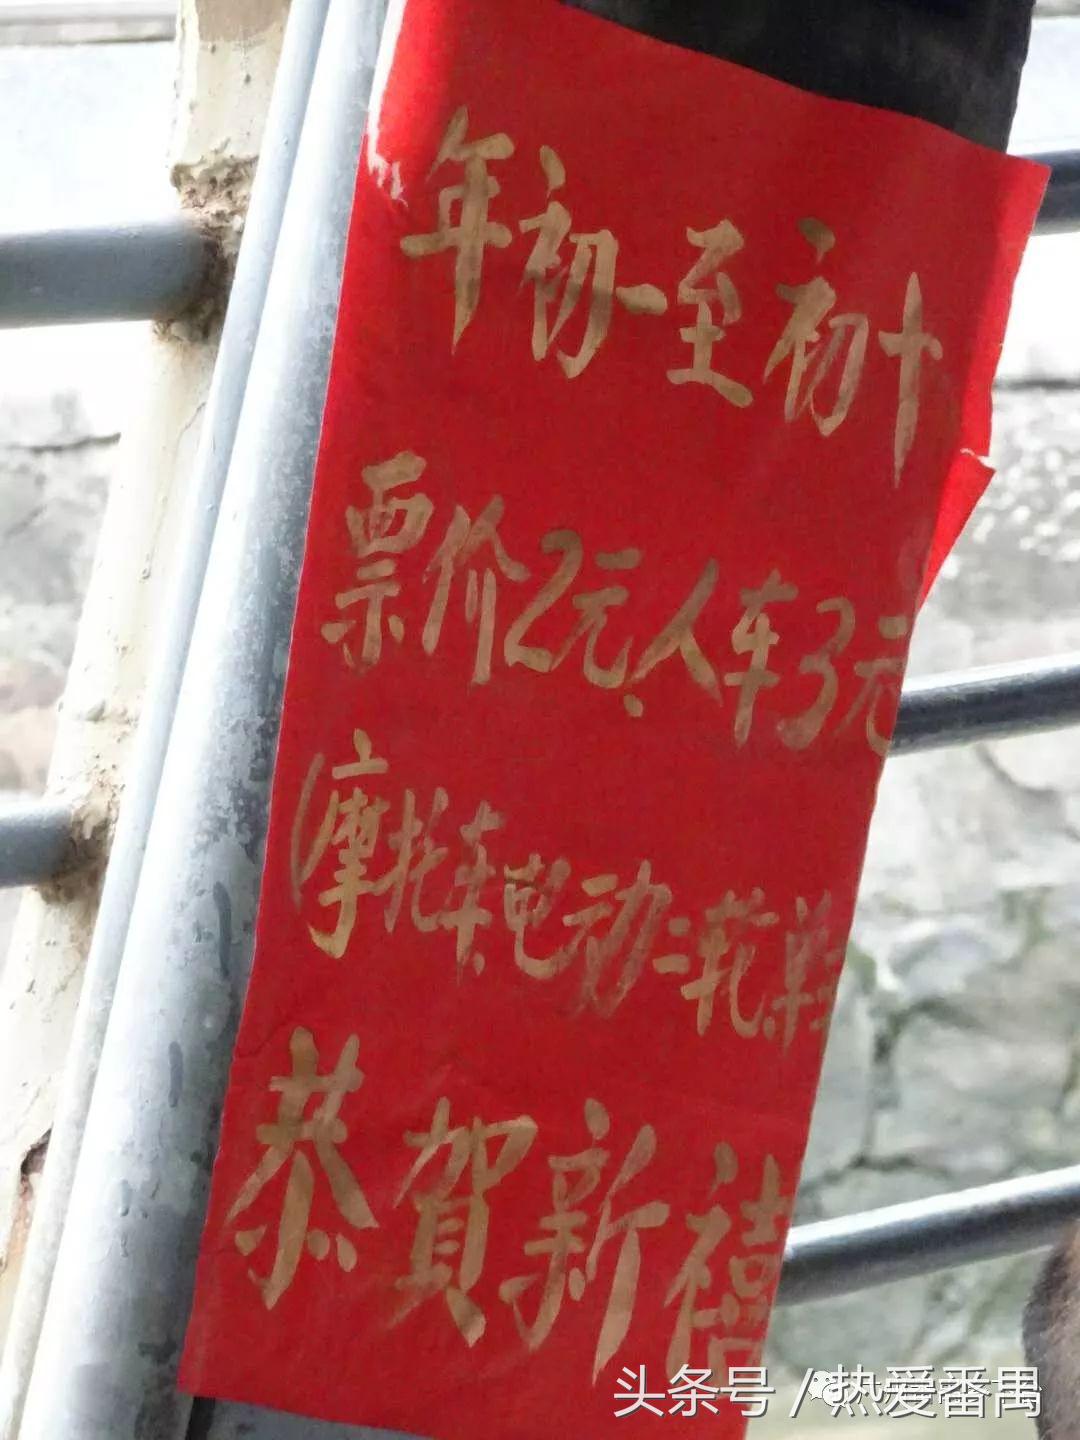 年初一至初十
票价2元.人车3元
(摩托车电动二荒单
恭賀新禧
头条号 / 热爱番禺